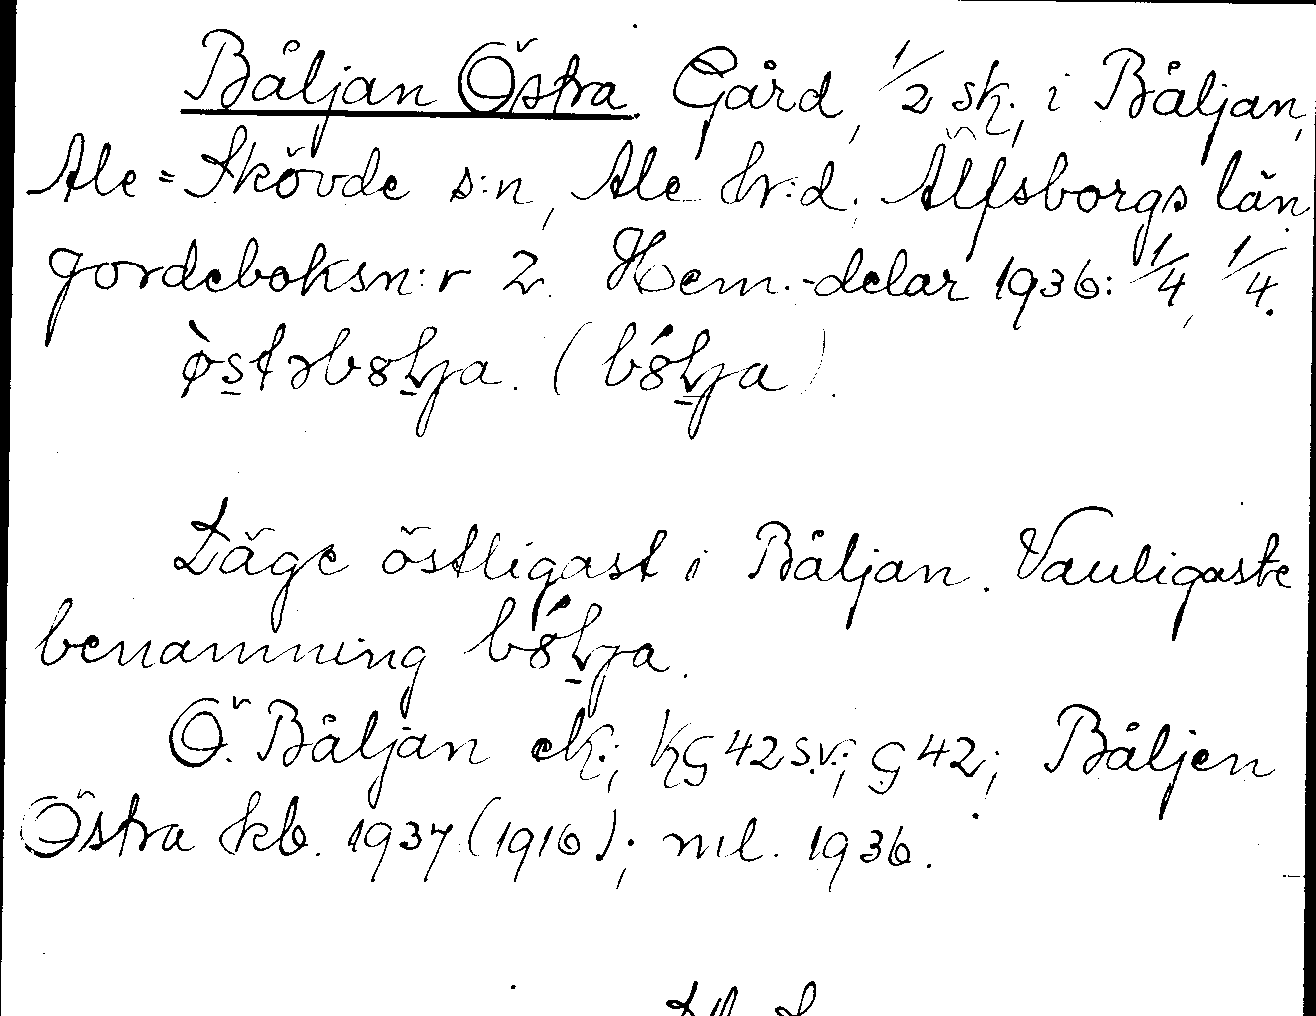 Båljan Östra. Gård, 1/2 sk., i Båljan,
Ale=Skövde s:n, Ale hr:d. Älfsborgs län.
Jordeboksn:r 2. Hem.-delar 1936: 1/4, 1/4.
ö̀stəb8ļja. (b8́ļja).
Läge östligast i Båljan. Vanligaste
benämning b8́ļja.
Ö. Båljan ek.; KG 42 s.v.; G 42; Båljen
Östra kb. 1937 (1916); ml. 1936.